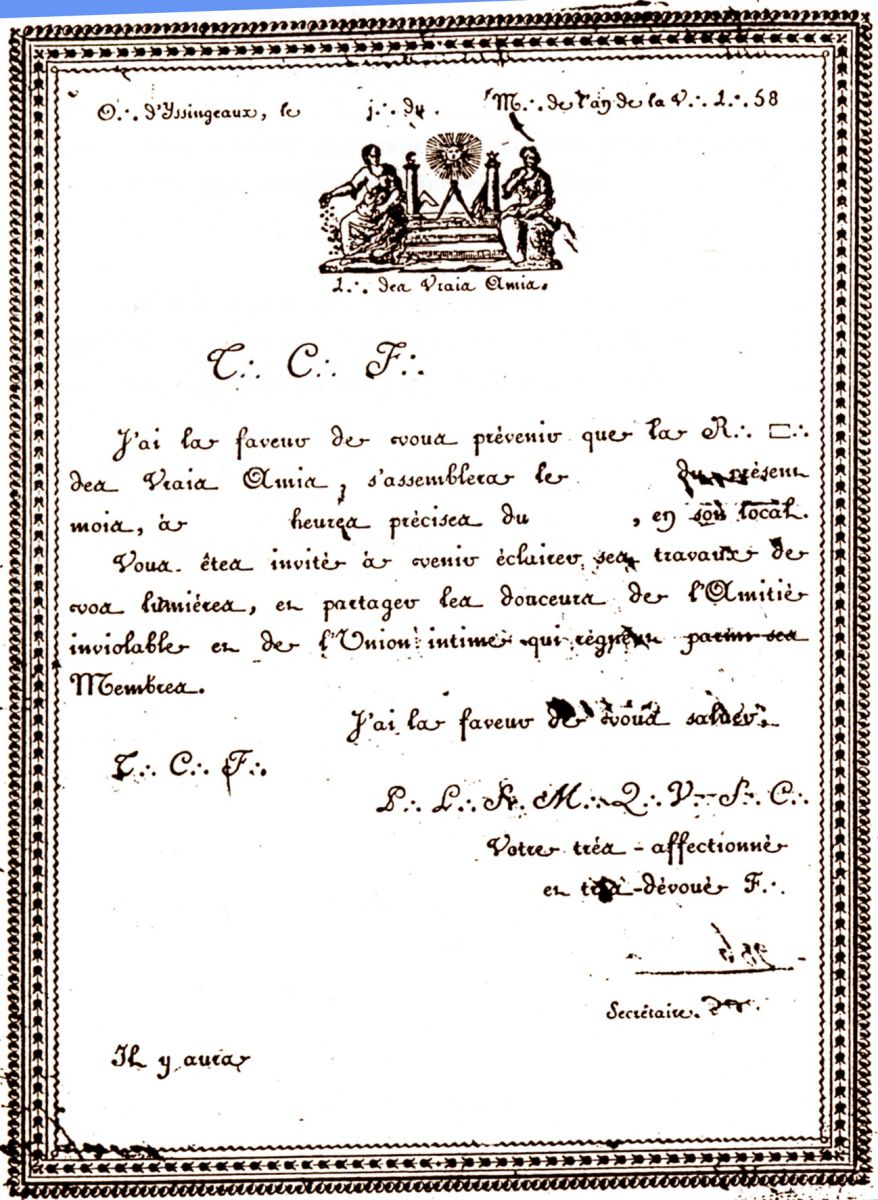 O∴ d'Yssingeaux, le j∴ du M∴ de l'an de la V∴ L∴ 58
L∴ des Vrais Amis.
T∴ C∴ F∴
J'ai la faveur de vous prévenir que la R∴ ▭∴
des Vrais Amis, s'assemblera le du présent
mois, à heures précises du , en son local.
Vous êtes invité à venir éclairer ses travaux de
vos lumières, et partager les douceurs de l'Amitié
inviolable et de l'Union intime qui règnent parmi ses
Membres.
J'ai la faveur de vous saluer,
T∴ C∴ F∴
P∴ L∴ N∴ M∴ Q∴ V∴ S∴ C∴
Votre très-affectionné
et très-dévoué F∴
Secrétaire.
Il y aura